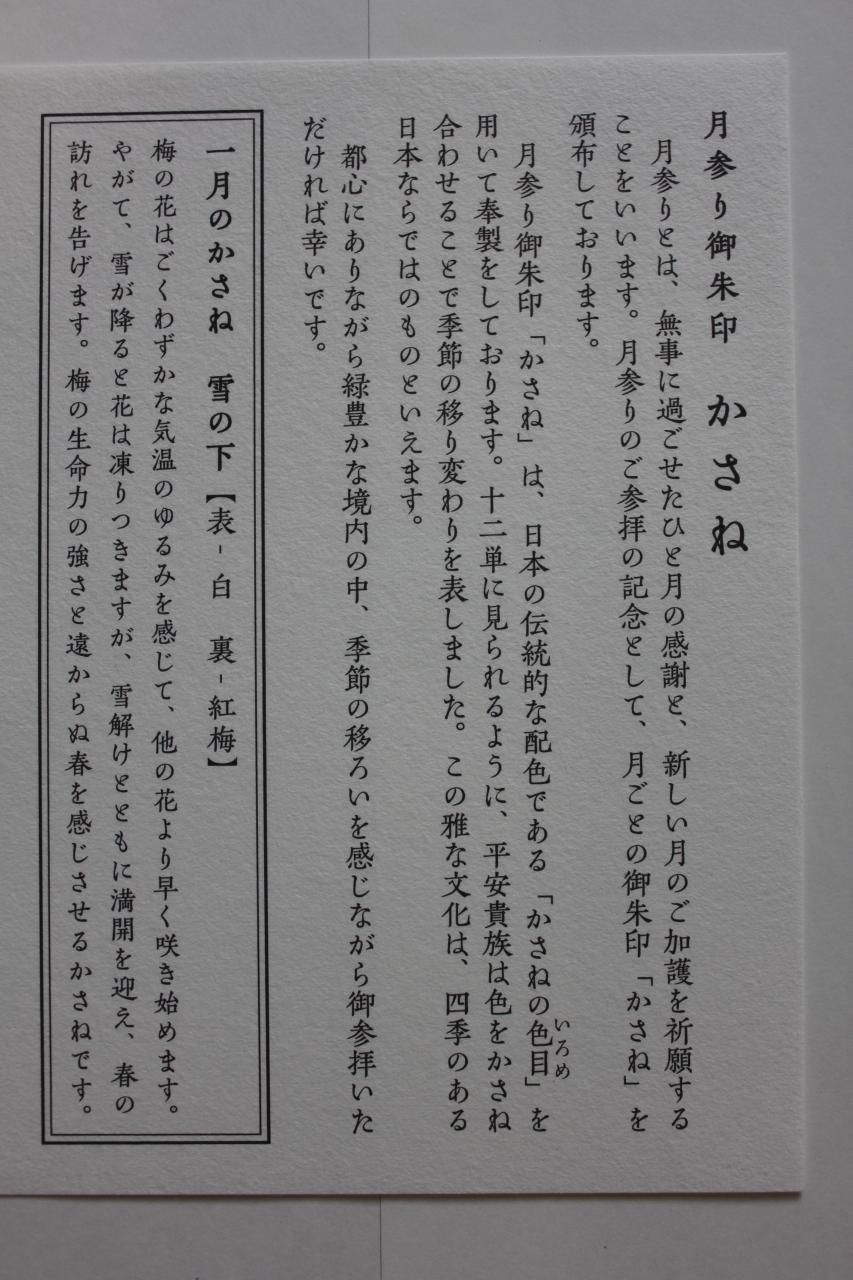 月参り御朱印　かさね
月参りとは、無事に過ごせたひと月の感謝と、新しい月のご加護を祈願する
ことをいいます。月参りのご参拝の記念として、月ごとの御朱印「かさね」を
頒布しております。
月参り御朱印「かさね」は、日本の伝統的な配色である「かさねの色目」を
いろめ
用いて奉製をしております。十二単に見られるように、平安貴族は色をかさね
合わせることで季節の移り変わりを表しました。この雅な文化は、四季のある
日本ならではのものといえます。
都心にありながら緑豊かな境内の中、季節の移ろいを感じながら御参拝いた
だければ幸いです。
一月のかさね　雪の下【表-白　裏-紅梅】
梅の花はごくわずかな気温のゆるみを感じて、他の花より早く咲き始めます。
やがて、雪が降ると花は凍りつきますが、雪解けとともに満開を迎え、春の
訪れを告げます。梅の生命力の強さと遠からぬ春を感じさせるかさねです。